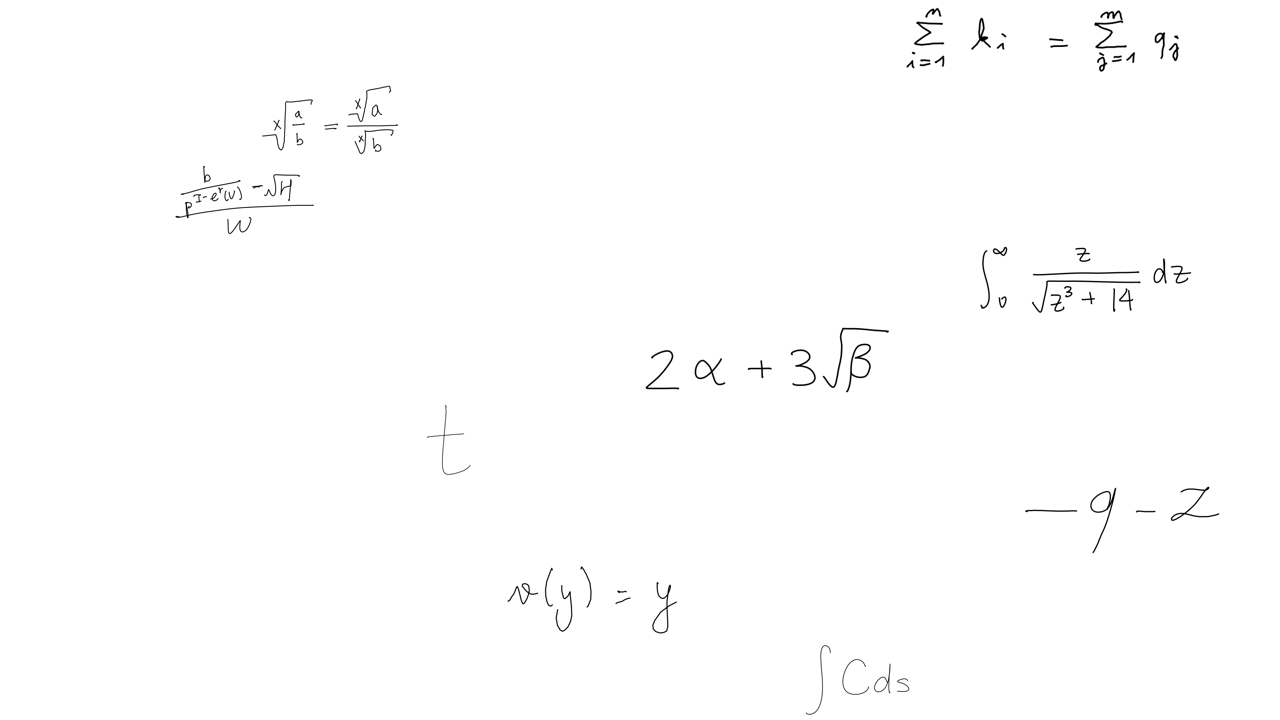 \sum_{i=1}^{n} k_i = \sum_{j=1}^{m} q_j
\sqrt[x]{\frac{a}{b}} = \frac{\sqrt[x]{a}}{\sqrt[x]{b}}
\frac{\frac{b}{p^{I-e^r(v)}} - \sqrt{H}}{W}
\int_0^\infty \frac{z}{\sqrt{z^3 + 14}} dz
2\alpha + 3\sqrt{\beta}
t
-q-z
v(y) = y
\int C ds